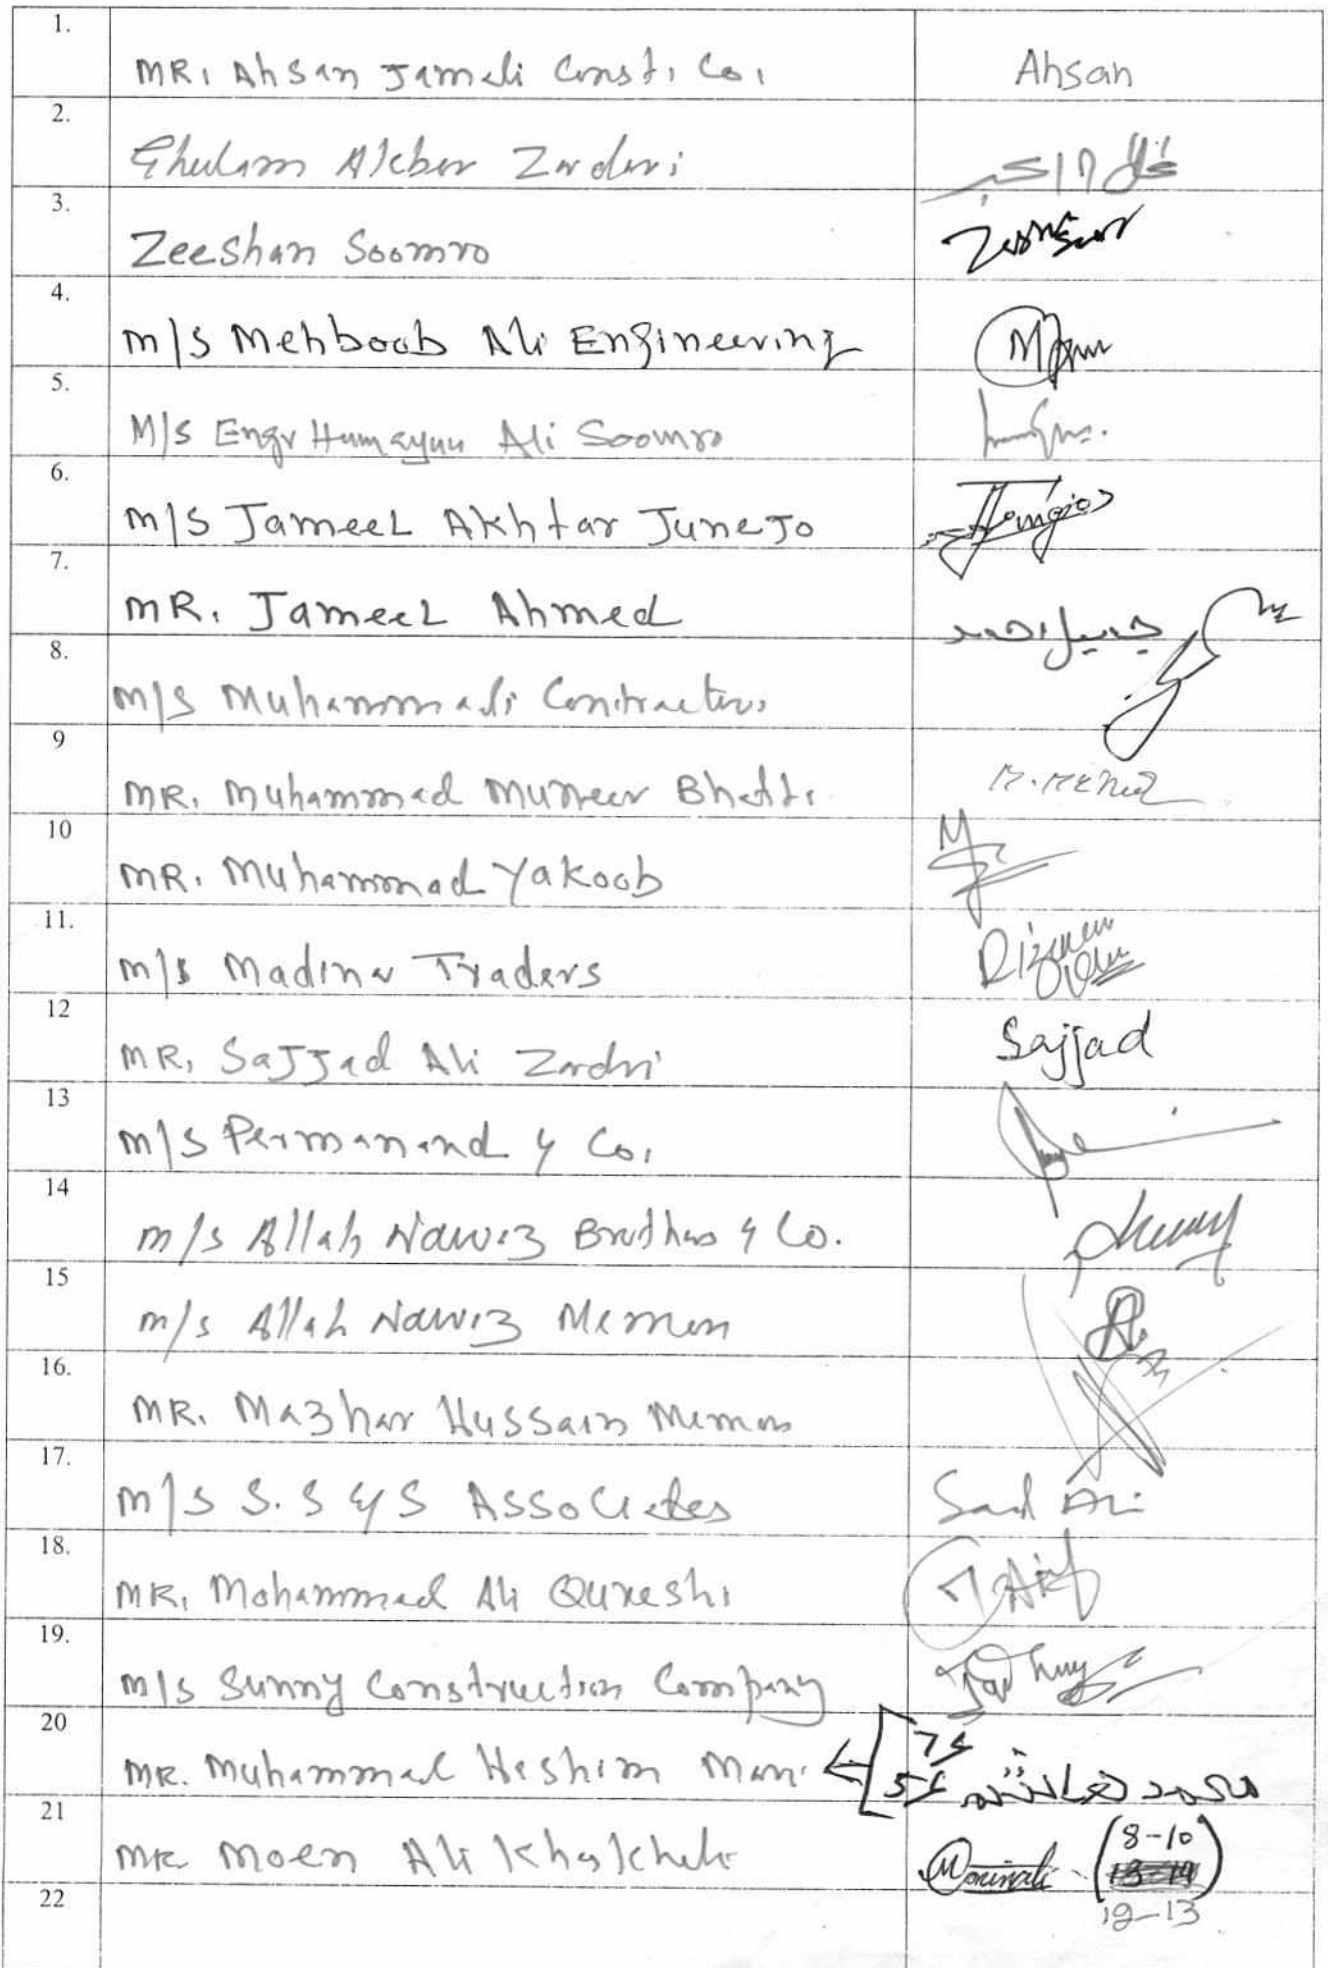 1.
MR. Ahsan Jamali Const. Co. Ahsan
2.
Ghulam Akbar Zardari غلام اکبر
3.
Zeeshan Soomro
4.
M/S Mehboob Ali Engineering
5.
M/S Engr Humayun Ali Soomro
6.
M/S Jameel Akhtar Junejo
7.
MR. Jameel Ahmed جميل احمد
8.
M/S Muhammadi Contractors
9
MR. Muhammad Muneer Bhatti
10
MR. Muhammad Yakoob
11.
M/S Madina Traders
12
MR. Sajjad Ali Zardri Sajjad
13
M/S Permanand & Co.
14
M/S Allah Nawaz Brothers & Co.
15
M/S Allah Nawaz Memon
16.
MR. Mazhar Hussain Memon
17.
M/S S.S & S Associates
18.
MR. Mohammad Ali Qureshi
19.
M/S Sunny Construction Company
20
MR. Muhammad Hashim
21
MR. Moen Ali Khaskheli 8-10
12-13
22